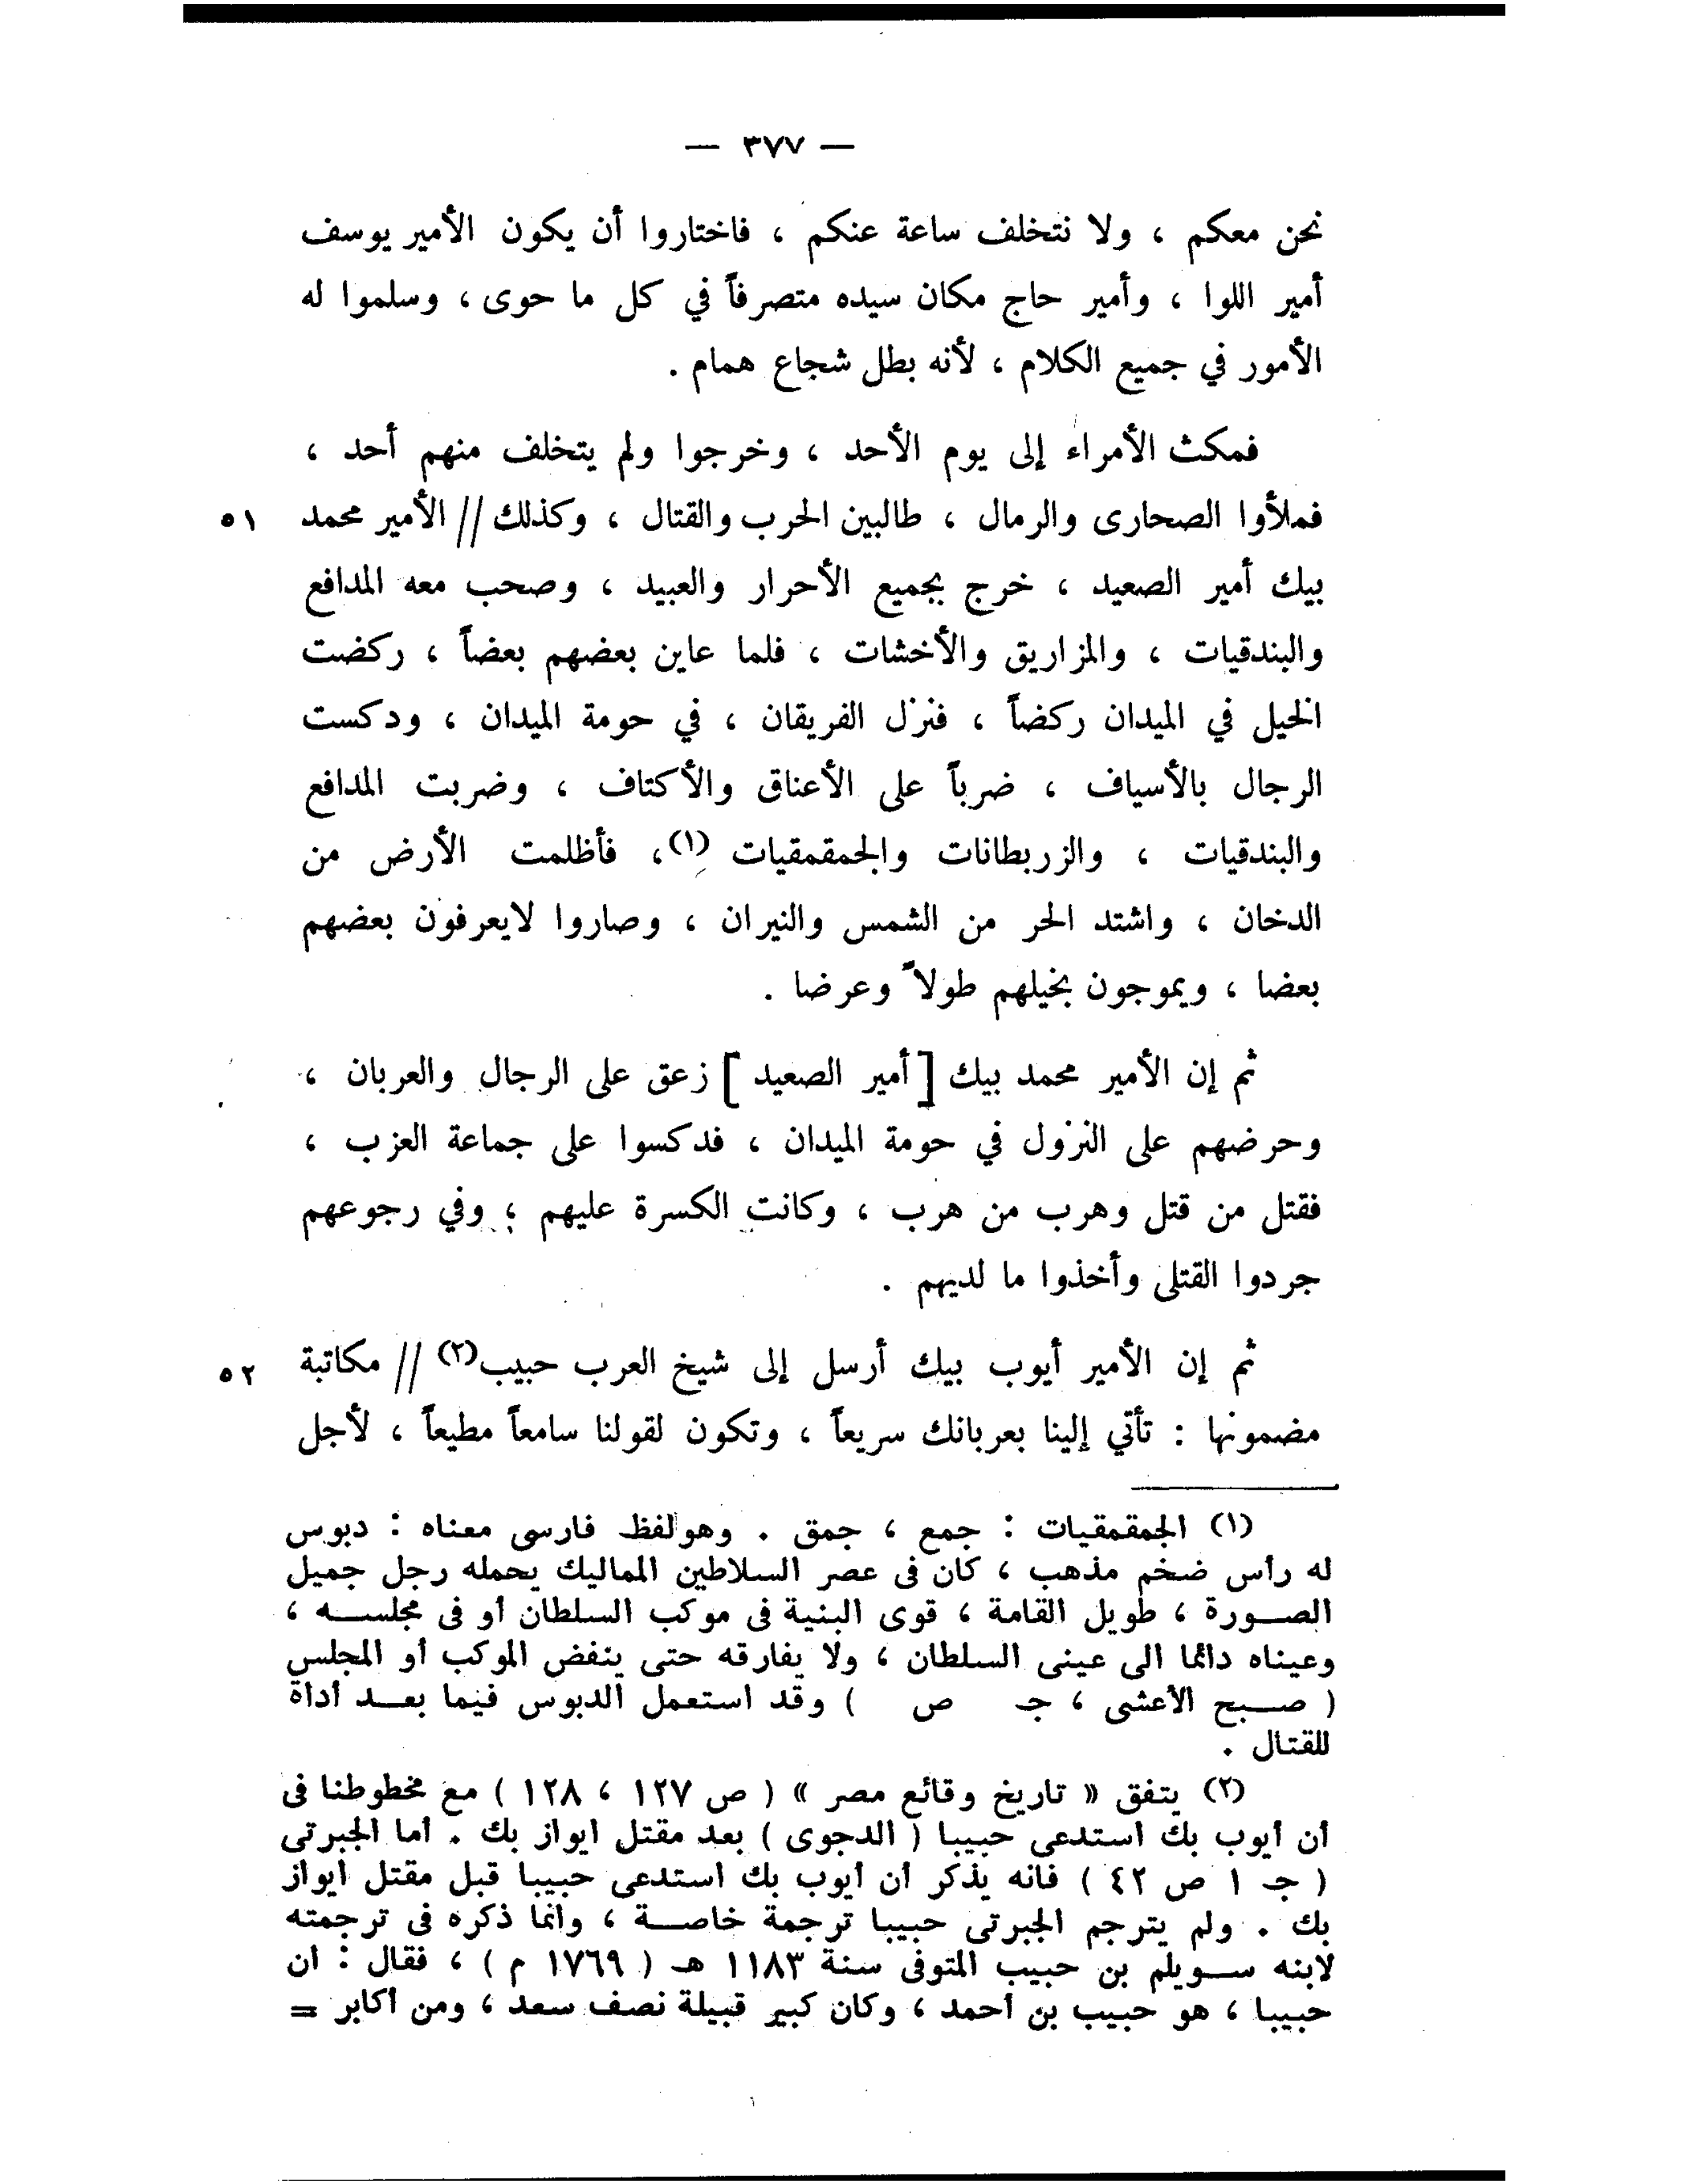 — ٣٧٧ —
نحن معكم ، ولا نتخلف ساعة عنكم ، فاختاروا أن يكون الأمير يوسف
أمير اللوا ، وأمير حاج مكان سيده متصرفاً في كل ما حوى ، وسلموا له
الأمور في جميع الكلام ، لأنه بطل شجاع همام .
فمكث الأمراء إلى يوم الأحد ، وخرجوا ولم يتخلف منهم أحد ،
فملأوا الصحارى والرمال ، طالبين الحرب والقتال ، وكذلك // الأمير محمد ٥١
بيك أمير الصعيد ، خرج بجميع الأحرار والعبيد ، وصحب معه المدافع
والبندقيات ، والمزاريق والأخشات ، فلما عاين بعضهم بعضاً ، ركضت
الخيل في الميدان ركضاً ، فنزل الفريقان ، في حومة الميدان ، ودكست
الرجال بالأسياف ، ضرباً على الأعناق والأكتاف ، وضربت المدافع
والبندقيات ، والزربطانات والجمقمقيات (١)، فأظلمت الأرض من
الدخان ، واشتد الحر من الشمس والنيران ، وصاروا لايعرفون بعضهم
بعضا ، ويموجون بخيلهم طولاً وعرضا .
ثم إن الأمير محمد بيك [ أمير الصعيد ] زعق على الرجال والعربان ،
وحرضهم على النزول في حومة الميدان ، فدكسوا على جماعة العزب ،
فقتل من قتل وهرب من هرب ، وكانت الكسرة عليهم ؛ وفي رجوعهم
جردوا القتلى وأخذوا ما لديهم .
ثم إن الأمير أيوب بيك أرسل إلى شيخ العرب حبيب(٢) // مكاتبة ٥٢
مضمونها : تأتي إلينا بعربانك سريعاً ، وتكون لقولنا سامعاً مطيعاً ، لأجل
(١) الجمقمقيات : جمع ، جمق . وهولفظ فارسى معناه : دبوس
له رأس ضخم مذهب ، كان فى عصر السلاطين المماليك يحمله رجل جميل
الصورة ، طويل القامة ، قوى البنية فى موكب السلطان أو فى مجلسه ،
وعيناه دائما الى عينى السلطان ، ولا يفارقه حتى ينفض الموكب أو المجلس
( صبح الأعشى ، جـ ص ) وقد استعمل الدبوس فيما بعد أداة
للقتال .
(٢) يتفق « تاريخ وقائع مصر » ( ص ١٢٧ ، ١٢٨ ) مع مخطوطنا فى
أن أيوب بك استدعى حبيبا ( الدجوى ) بعد مقتل ايواز بك . أما الجبرتى
( جـ ١ ص ٤٢ ) فانه يذكر أن أيوب بك استدعى حبيبا قبل مقتل ايواز
بك . ولم يترجم الجبرتى حبيبا ترجمة خاصة ، وانما ذكره فى ترجمته
لابنه سويلم بن حبيب المتوفى سنة ١١٨٣ هـ ( ١٧٦٩ م ) ، فقال : ان
حبيبا ، هو حبيب بن أحمد ، وكان كبير قبيلة نصف سعد ، ومن أكابر =